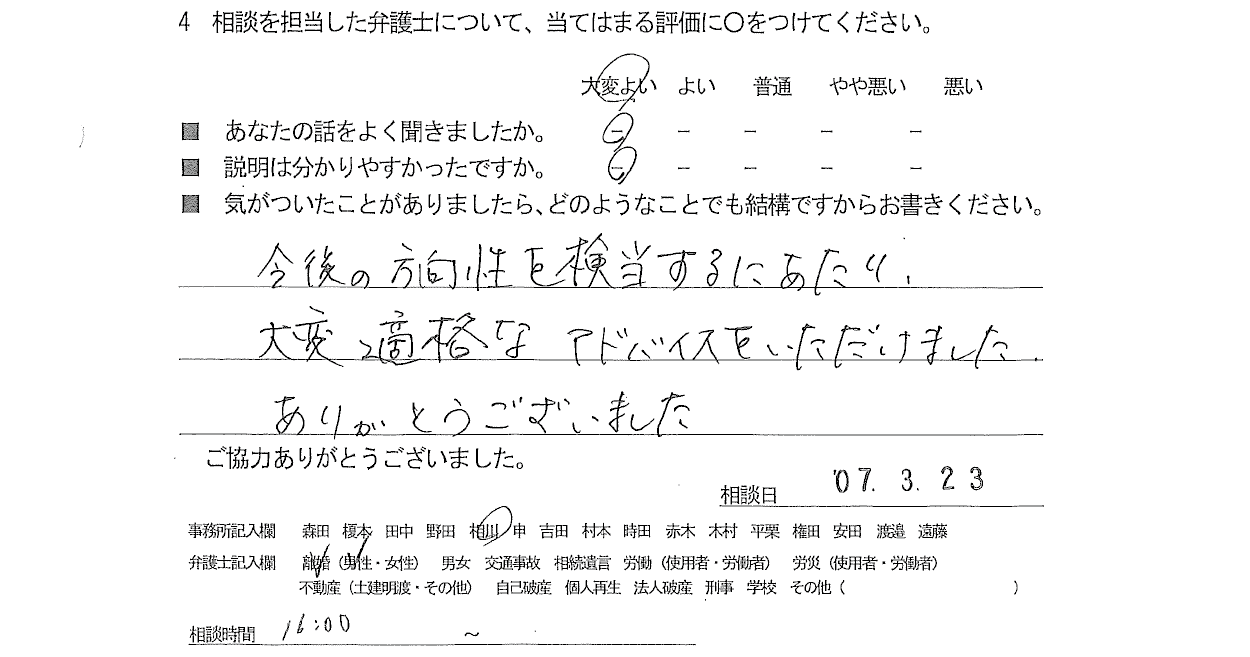 4 相談を担当した弁護士について、当てはまる評価に○をつけてください。
大変よい よい 普通 やや悪い 悪い
■ あなたの話をよく聞きましたか。 － － － － －
■ 説明は分かりやすかったですか。 － － － － －
■ 気がついたことがありましたら、どのようなことでも結構ですからお書きください。
今後の方向性を検当するにあたり、
大変適格な アドバイスをいただけました.
ありがとうございました
ご協力ありがとうございました。
相談日 '07. 3. 23
事務所記入欄 森田 榎本 田中 野田 柏川 申 吉田 村本 時田 赤木 木村 平栗 権田 安田 渡邉 遠藤
弁護士記入欄 離婚（男性・女性） 男女 交通事故 相続遺言 労働（使用者・労働者） 労災（使用者・労働者）
不動産（土建明度・その他） 自己破産 個人再生 法人破産 刑事 学校 その他（ ）
相談時間 16:00 ～